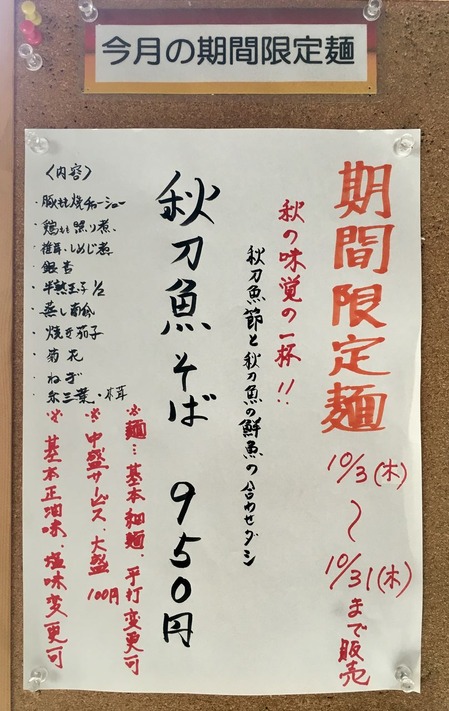 今月の期間限定麺
期間限定麺
10/3(木)
〜
10/31(木)
まで販売
秋の味覚の一杯!!
秋刀魚節と秋刀魚の鮮魚の合わせダシ
秋刀魚そば 950円
〈内容〉
・豚もも焼チャーシュー
・鶏もも照り煮、
・椎茸、しめじ煮
・銀杏
・半熟玉子 1/2
・蒸し南瓜
・焼き茄子
・菊花
・ねぎ
・糸三葉・樁茸
※麺…基本細麺、平打変更可
※中盛サービス、大盛100円
※基本正油味、塩味変更可